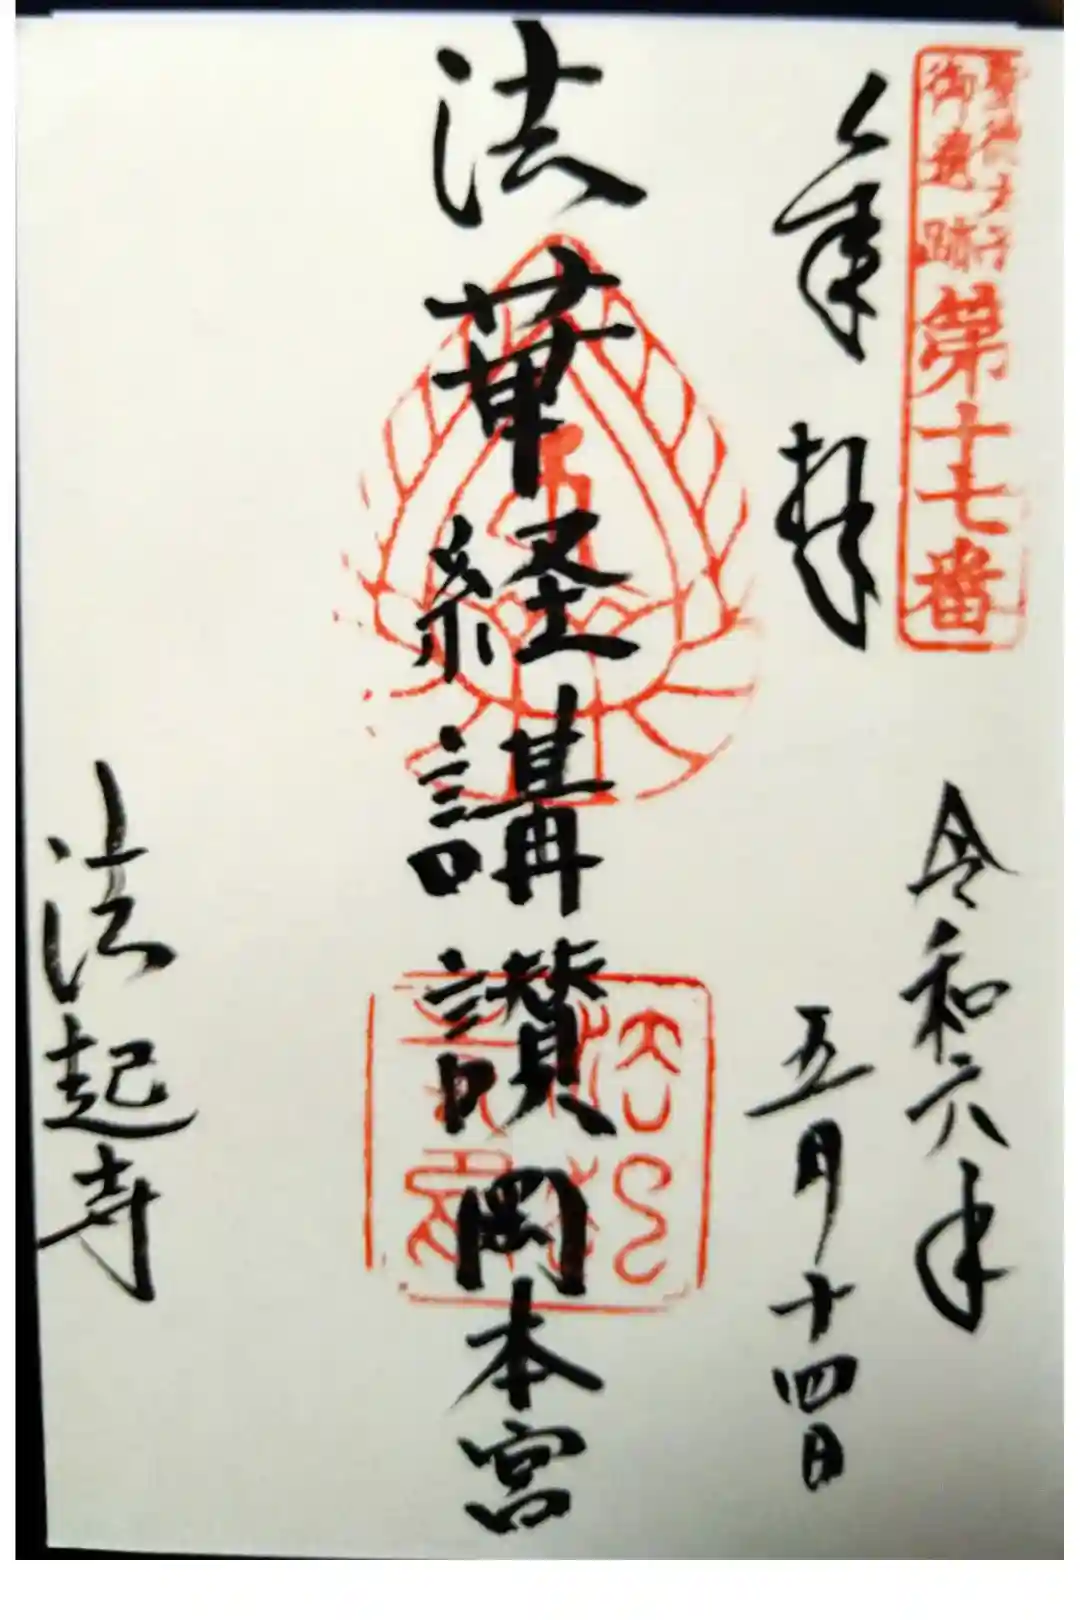 聖徳太子
御遺跡
第十七番
奉拝
令和六年
五月十四日
法華経講讃岡本宮
法起寺